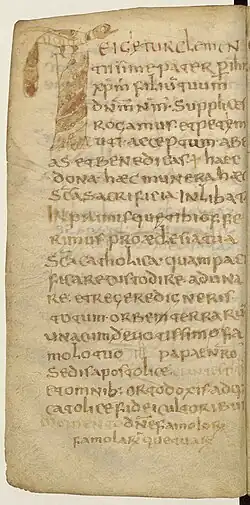 TEIGETURCLEMEN
TISSIMEPATER PIHM
XPM FILIUTUUM
DNMNM SUPPLICES
ROGAMUS ETPETIM
UTI ACCEPTUM ABE
AS ETBENEDICAS HAEC
DONA HAEC MUNERA HAEC
SCA SACRIFICIA INLIBATA
INPRIMIS QUETIBIOFFE
RIMUS PRO AECLESIATUA
SCACATHOLICA QUAMPACI
FICARECUSTODIRE ADUNA
RE ETREGEREDIGNERIS
TOTUM ORBEMTERRARU
UNACUMDEUOTISSIMOFA
MOLOTUO PAPAENRO
SEDISAPOSTOLICE
ETOMNIB ORTODOXISADQ
CATOLICEFIDEICULTORIBUS
MEMENTO DNE FAMOLORU
FAMOLARUQUETUARU